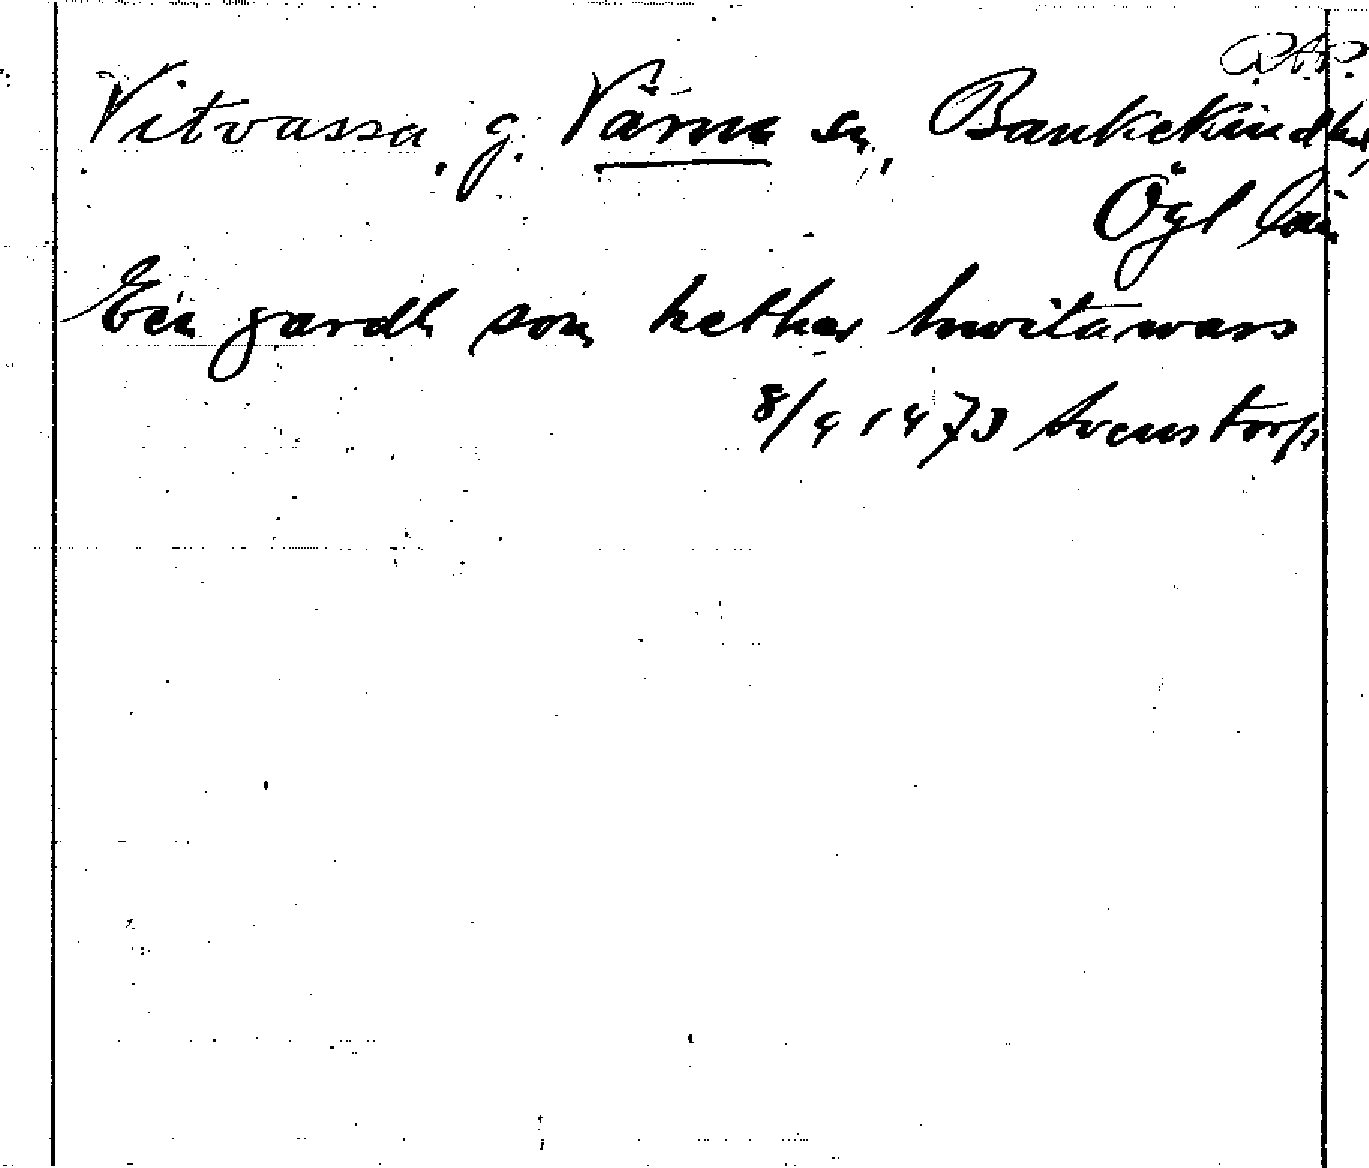 RAP.
Vitvassa, g. Värna sn, Bankekinds hd,
Ögl län
Een gardh som hether hwitawass
8/9 1473 Svenstorp